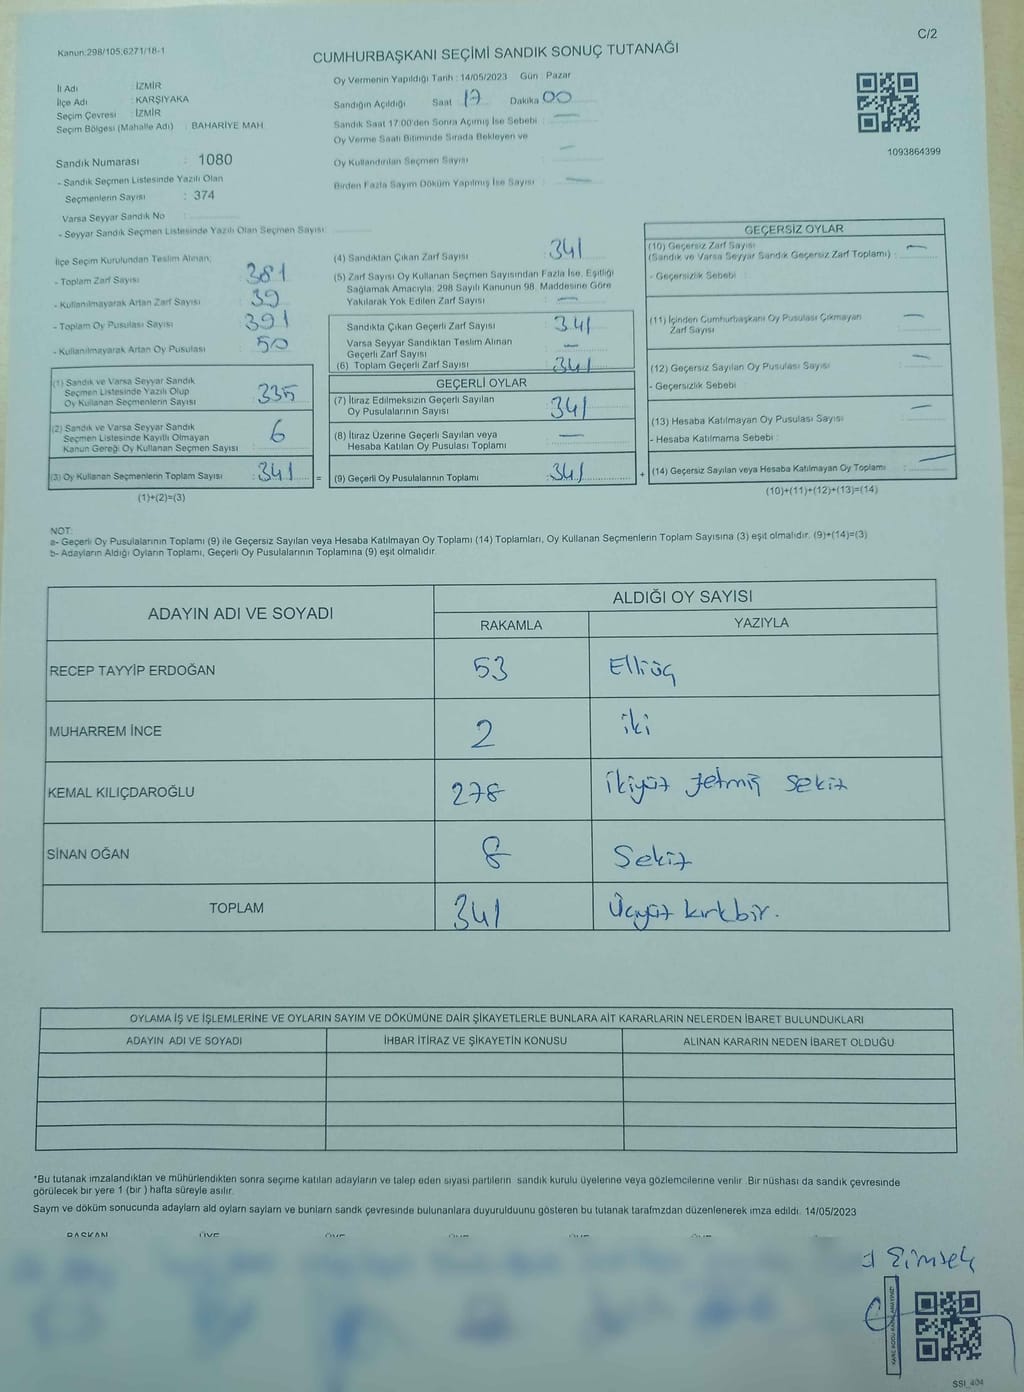 Kanun:298/105,6271/18-1
C/2
CUMHURBAŞKANI SEÇİMİ SANDIK SONUÇ TUTANAĞI
İl Adı : İZMİR
İlçe Adı : KARŞIYAKA
Seçim Çevresi : İZMİR
Seçim Bölgesi (Mahalle Adı) : BAHARİYE MAH.
Sandık Numarası : 1080
- Sandık Seçmen Listesinde Yazılı Olan
Seçmenlerin Sayısı : 374
Varsa Seyyar Sandık No :
- Seyyar Sandık Seçmen Listesinde Yazılı Olan Seçmen Sayısı:
Oy Vermenin Yapıldığı Tarih : 14/05/2023 Gün : Pazar
Sandığın Açıldığı Saat 17 Dakika 00
Sandık Saat 17:00'den Sonra Açımış İse Sebebi : —
Oy Verme Saati Bitiminde Sırada Bekleyen ve
Oy Kullandırılan Seçmen Sayısı : —
Birden Fazla Sayım Döküm Yapılmış İse Sayısı : —
1093864399
İlçe Seçim Kurulundan Teslim Alınan;
- Toplam Zarf Sayısı : 381
- Kullanılmayarak Artan Zarf Sayısı : 39
- Toplam Oy Pusulası Sayısı : 391
- Kullanılmayarak Artan Oy Pusulası : 50
(1) Sandık ve Varsa Seyyar Sandık
Seçmen Listesinde Yazılı Olup
Oy Kullanan Seçmenlerin Sayısı : 335
(2) Sandık ve Varsa Seyyar Sandık
Seçmen Listesinde Kayıtlı Olmayan
Kanun Gereği Oy Kullanan Seçmen Sayısı : 6
(3) Oy Kullanan Seçmenlerin Toplam Sayısı : 341
(1)+(2)=(3)
(4) Sandıktan Çıkan Zarf Sayısı : 341
(5) Zarf Sayısı Oy Kullanan Seçmen Sayısından Fazla İse, Eşitliği
Sağlamak Amacıyla; 298 Sayılı Kanunun 98. Maddesine Göre
Yakılarak Yok Edilen Zarf Sayısı : —
Sandıkta Çıkan Geçerli Zarf Sayısı : 341
Varsa Seyyar Sandıktan Teslim Alınan
Geçerli Zarf Sayısı : —
(6) Toplam Geçerli Zarf Sayısı : 341
GEÇERLİ OYLAR
(7) İtiraz Edilmeksizin Geçerli Sayılan
Oy Pusulalarının Sayısı : 341
(8) İtiraz Üzerine Geçerli Sayılan veya
Hesaba Katılan Oy Pusulası Toplamı : —
= (9) Geçerli Oy Pusulalarının Toplamı : 341
GEÇERSİZ OYLAR
(10) Geçersiz Zarf Sayısı
(Sandık ve Varsa Seyyar Sandık Geçersiz Zarf Toplamı) : —
- Geçersizlik Sebebi :
(11) İçinden Cumhurbaşkanı Oy Pusulası Çıkmayan
Zarf Sayısı : —
(12) Geçersiz Sayılan Oy Pusulası Sayısı : —
- Geçersizlik Sebebi
(13) Hesaba Katılmayan Oy Pusulası Sayısı : —
- Hesaba Katılmama Sebebi :
+ (14) Geçersiz Sayılan veya Hesaba Katılmayan Oy Toplamı : —
(10)+(11)+(12)+(13)=(14)
NOT:
a- Geçerli Oy Pusulalarının Toplamı (9) ile Geçersiz Sayılan veya Hesaba Katılmayan Oy Toplamı (14) Toplamları, Oy Kullanan Seçmenlerin Toplam Sayısına (3) eşit olmalıdır. (9)+(14)=(3)
b- Adayların Aldığı Oyların Toplamı, Geçerli Oy Pusulalarının Toplamına (9) eşit olmalıdır.
ADAYIN ADI VE SOYADI
ALDIĞI OY SAYISI
RAKAMLA YAZIYLA
RECEP TAYYİP ERDOĞAN 53 Elliüç
MUHARREM İNCE 2 iki
KEMAL KILIÇDAROĞLU 278 İkiyüz yetmiş sekiz
SİNAN OĞAN 8 Sekiz
TOPLAM 341 Üçyüz kırkbir.
OYLAMA İŞ VE İŞLEMLERİNE VE OYLARIN SAYIM VE DÖKÜMÜNE DAİR ŞİKAYETLERLE BUNLARA AİT KARARLARIN NELERDEN İBARET BULUNDUKLARI
ADAYIN ADI VE SOYADI İHBAR İTİRAZ VE ŞİKAYETİN KONUSU ALINAN KARARIN NEDEN İBARET OLDUĞU
*Bu tutanak imzalandıktan ve mühürlendikten sonra seçime katılan adayların ve talep eden siyasi partilerin sandık kurulu üyelerine veya gözlemcilerine verilir. Bir nüshası da sandık çevresinde
görülecek bir yere 1 (bir ) hafta süreyle asılır.
Sayım ve döküm sonucunda adayların ald oyların sayların ve bunların sandk çevresinde bulunanlara duyurulduunu gösteren bu tutanak tarafmzdan düzenlenerek imza edildi. 14/05/2023
BAŞKAN ÜYE ÜYE ÜYE ÜYE ÜYE
SSI_404